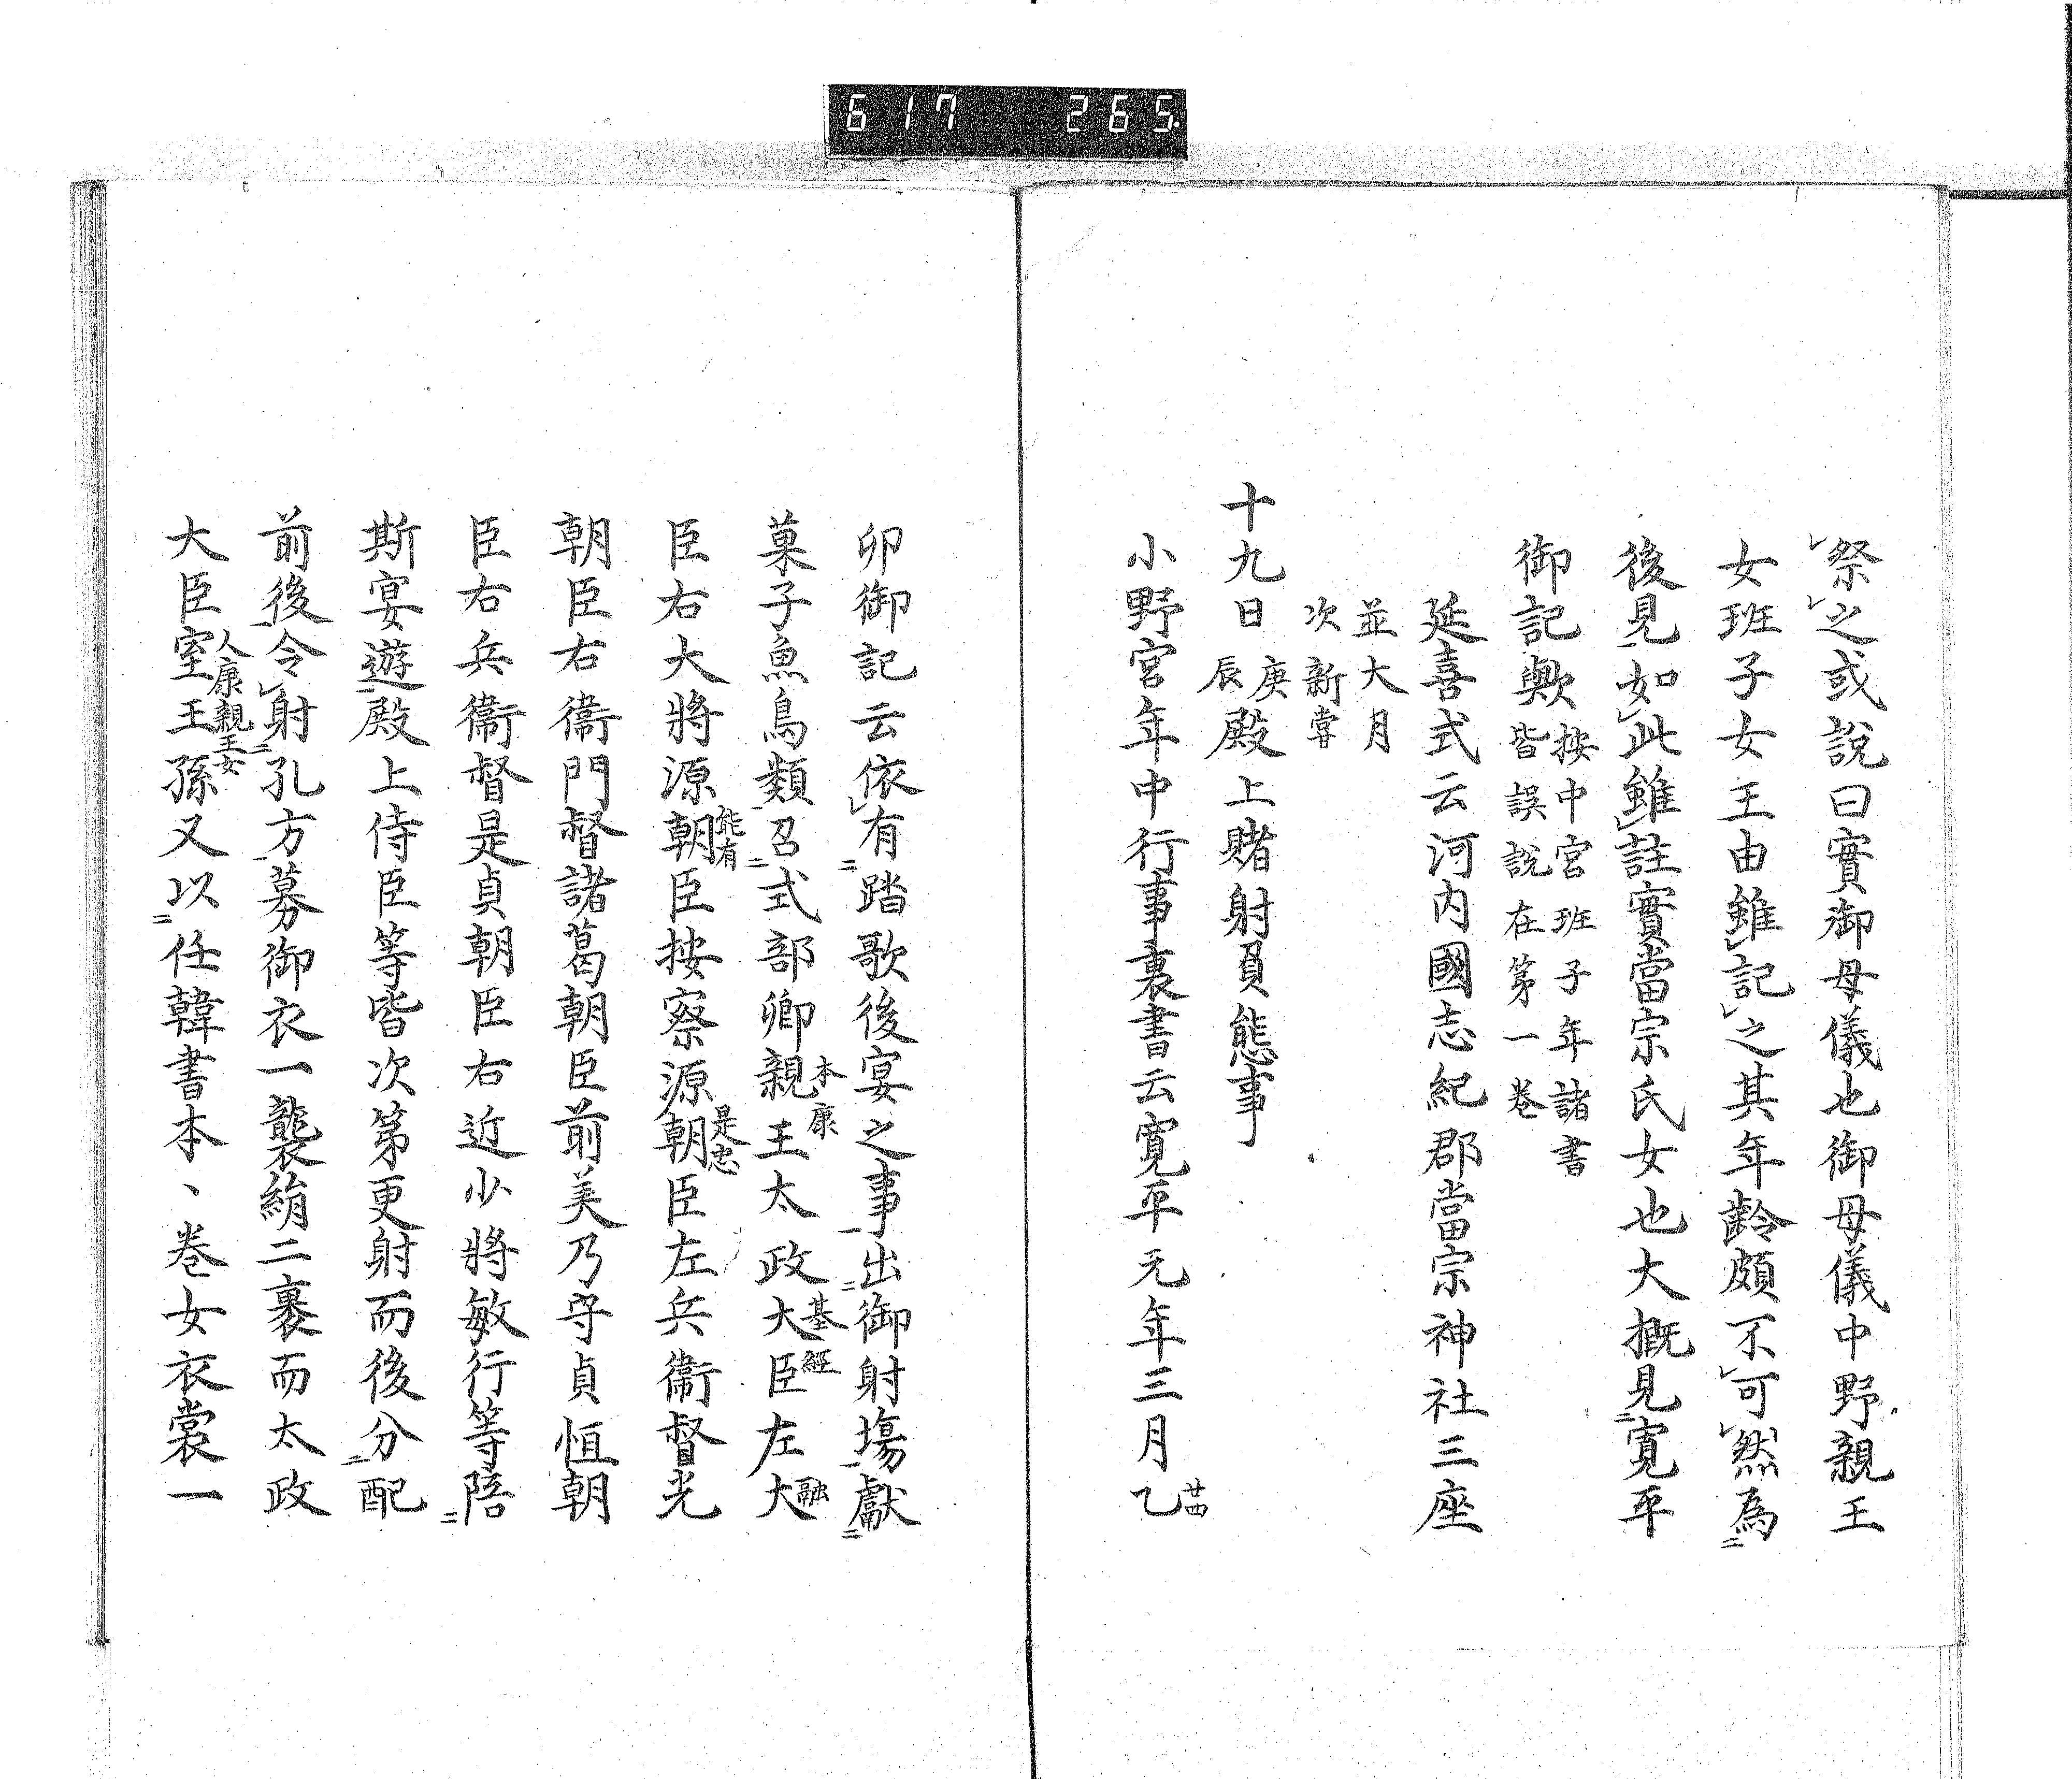 617 265
祭之或說曰實御母儀也御母儀中野親王
女班子女王由雖記之其年齡頗不可然爲
後見如此雖註實當宗氏女也大概見寛平
御記歟按中宮班子年諸書皆誤說在第一卷
延喜式云河内國志紀郡當宗神社三座
並大月次新嘗
十九日庚辰殿上賭射負態事
小野宮年中行事裏書云寛平元年三月廿四乙
卯御記云依有踏歌後宴之事出御射場獻
菓子魚鳥類召式部卿親王本康太政大臣基經左大融
臣右大將源朝能有臣按察源朝是忠臣左兵衞督光
朝臣右衞門督諸葛朝臣前美乃守貞恒朝
臣右兵衞督是貞朝臣右近少將敏行等陪
斯宴遊殿上侍臣等皆次第更射而後分配
前後令射孔方募御衣一襲絹二裹而太政
大臣室王人康親王女孫又以任韓書本、卷女衣裳一